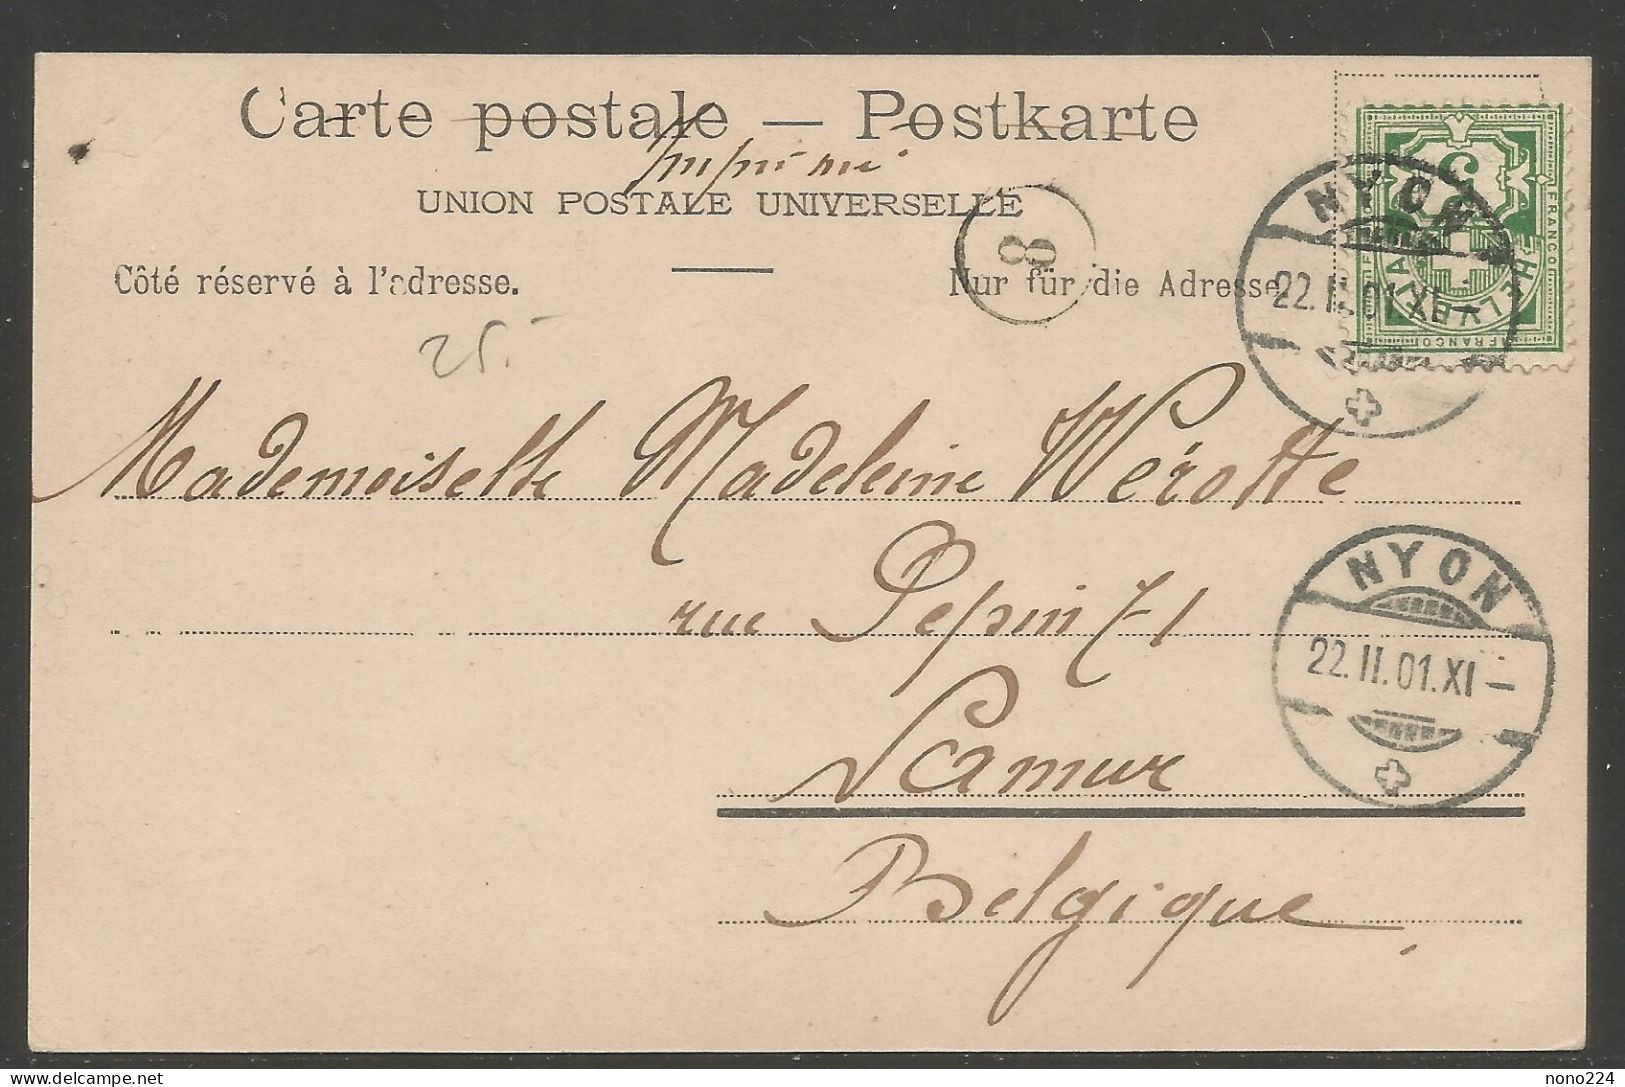 Carte postale — Postkarte
Imprimé
UNION POSTALE UNIVERSELLE
Côté réservé à l'adresse.
Nur für die Adresse.
8
25.-
5
FRANCO
HELVETIA
FRANCO
NYON
22.II.01.XI-
Mademoiselle Madeleine Wérotte
rue Pepin 71
Namur
Belgique
NYON
22.II.01.XI-
nono224